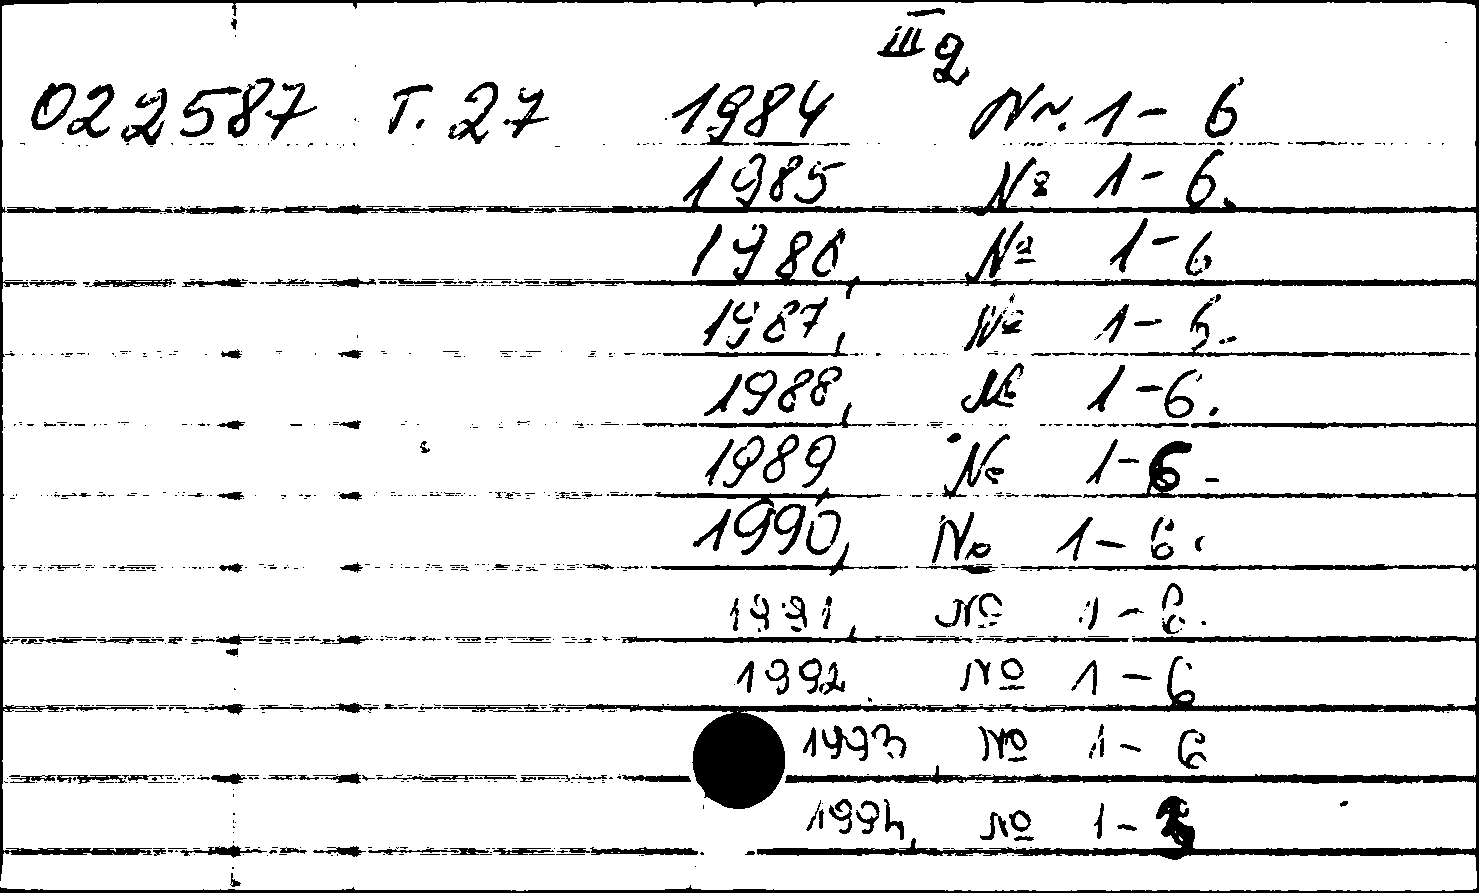 III 2
022587 T. 27 1984 Nr. 1-6
1985 № 1-6.
1986, № 1-6
1987, № 1-6.
1988, № 1-6.
1989, № 1-6.
1990, № 1-6.
1991, № 1-6.
1992 № 1-6
1993, № 1-6
1994, № 1-